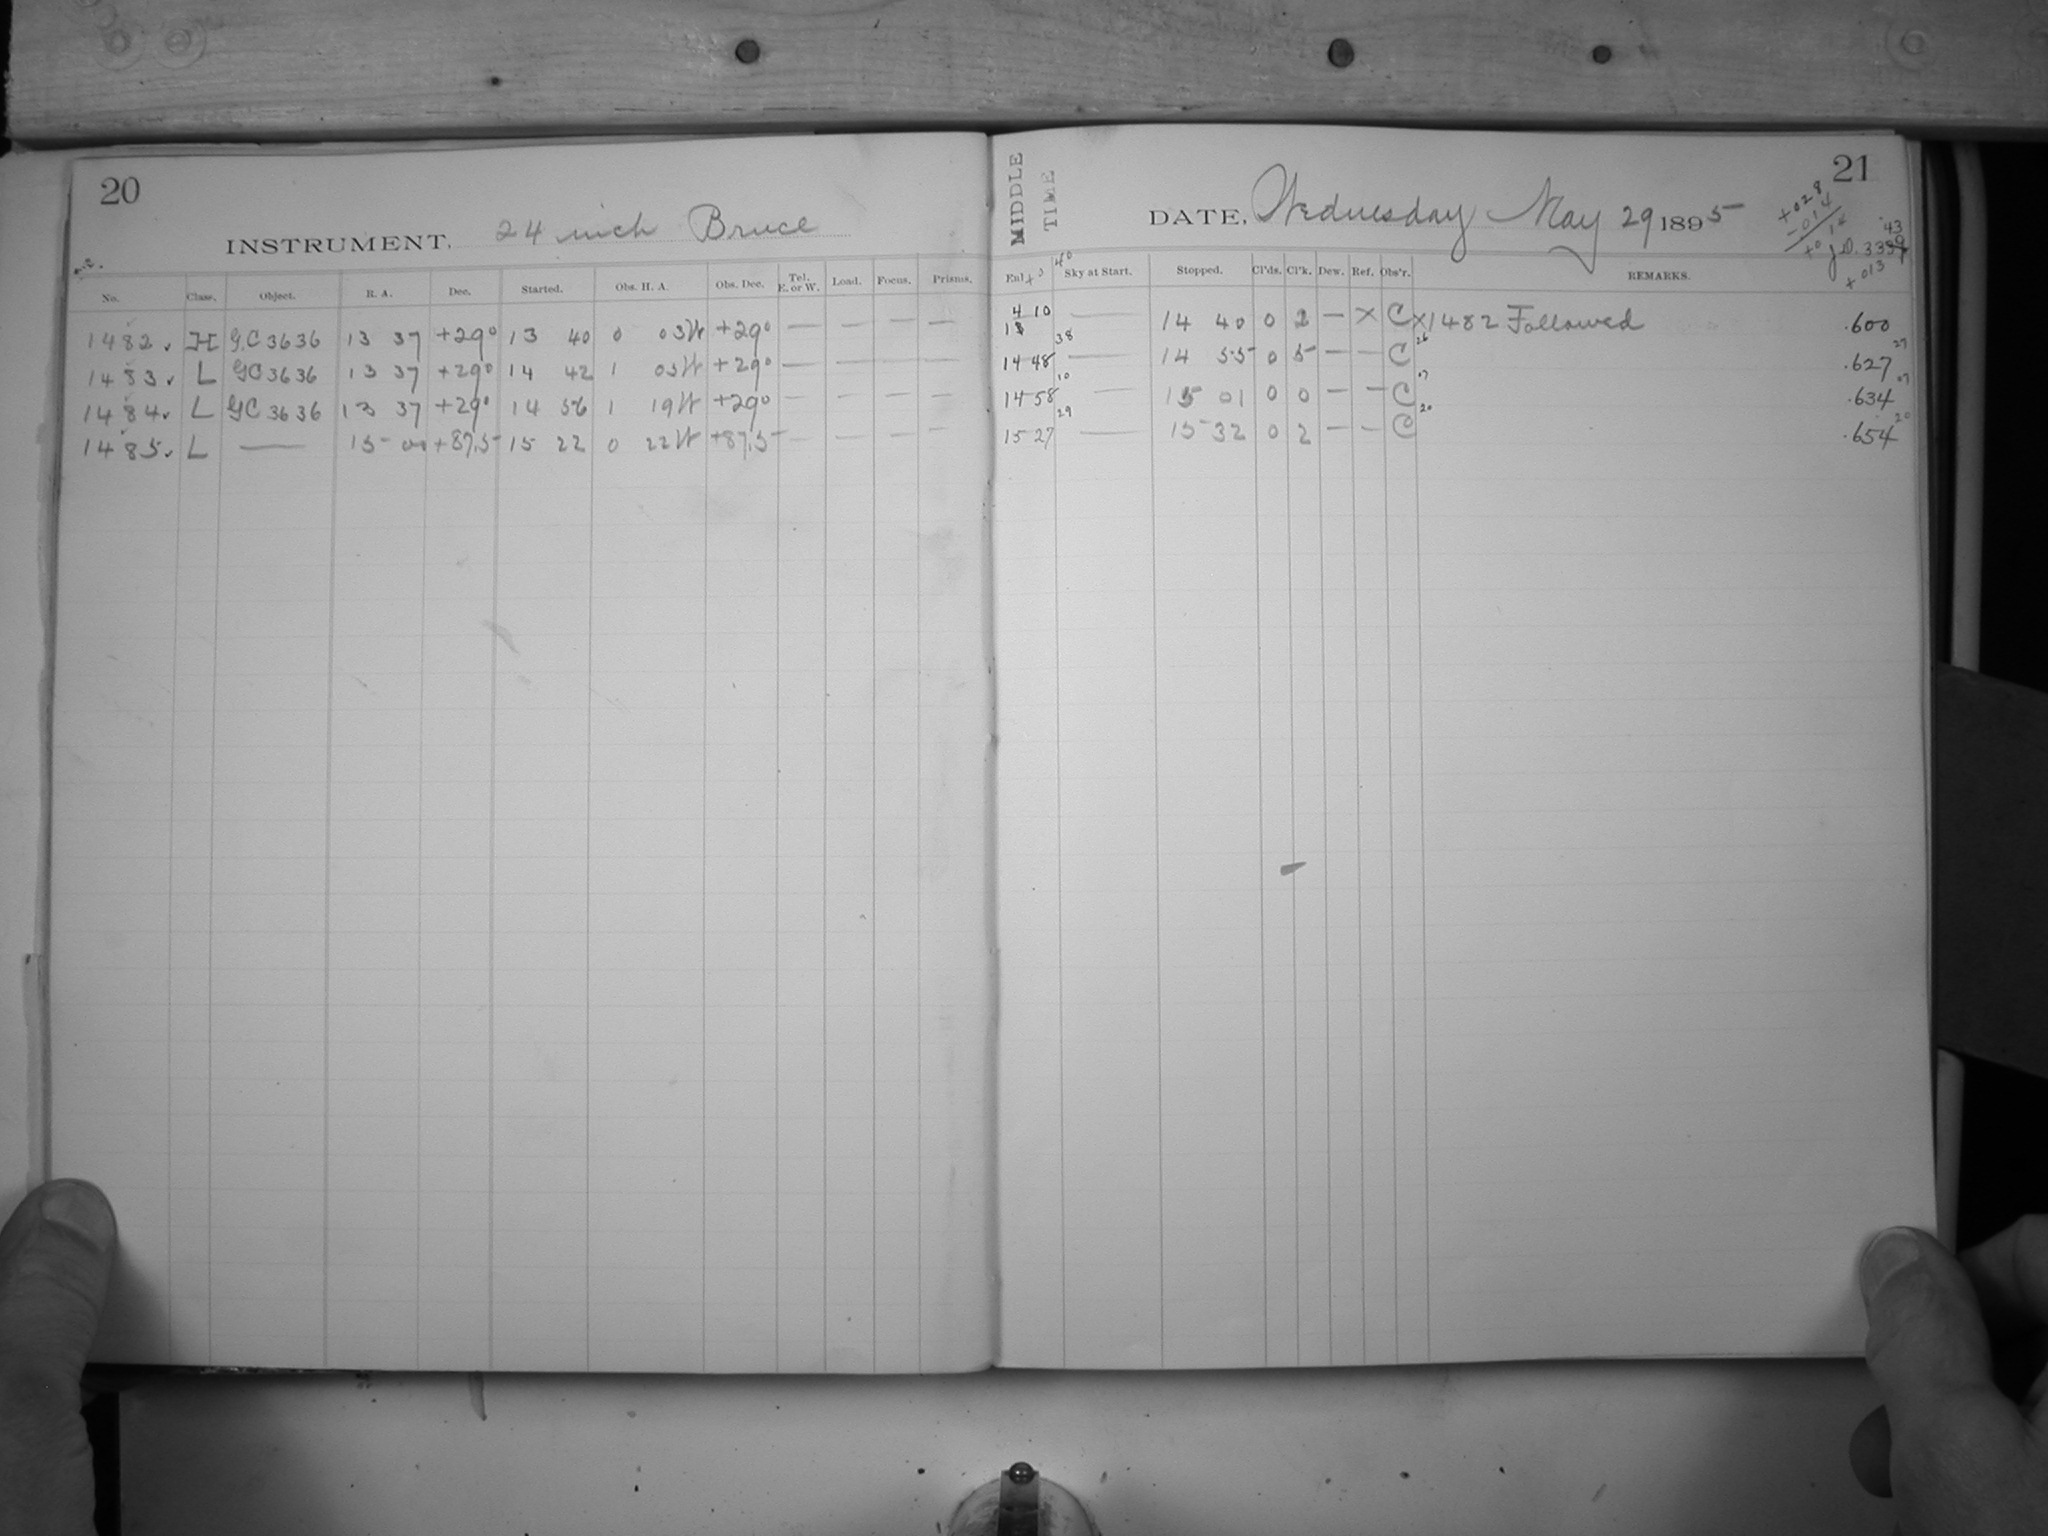 20
INSTRUMENT. 24 inch Bruce
No. Class. Object. R. A. Dec. Started. Obs. H. A. Obs. Dec. Tel. E. or W. Load. Focus. Prisms.
1482 H G.C 3636 13 37 +29° 13 40 0 03W +29° — — — —
1483 L GC 3636 13 37 +29° 14 42 1 03W +29° — — — —
1484 L GC 3636 13 37 +29° 14 56 1 19W +29° — — — —
1485 L — 15 00 +87.5 15 22 0 22W +87.5 — — — —
MIDDLE TIME
21
DATE, Wednesday May 29 1895
+028
-014
+014
43
J.D. 3339
+013
Sky at Start. Stopped. Cl'ds. Cl'k. Dew. Ref. Obs'r. REMARKS.
4 10 — 14 40 0 2 — × C ×1482 Followed .600
38 26 27
14 48 — 14 55 0 5 — — C .627
10 07 07
14 58 — 15 01 0 0 — — C .634
29 20 20
15 27 — 15 32 0 2 — — C .654